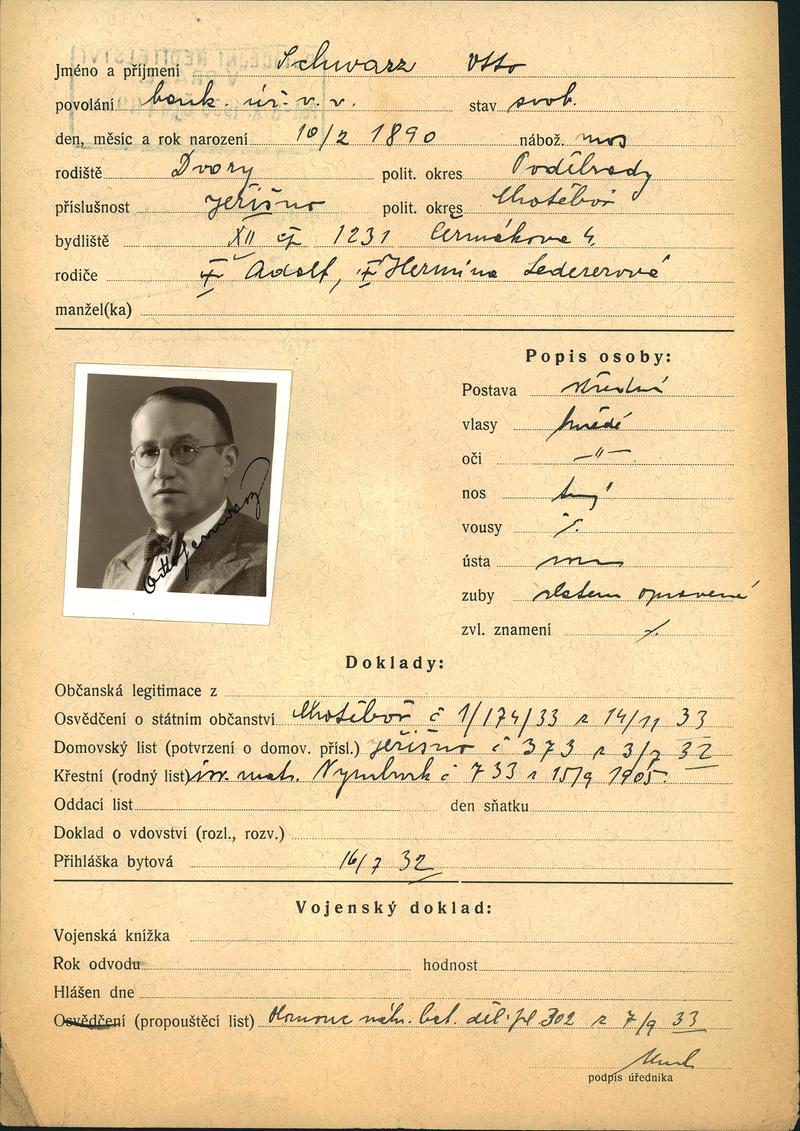 Jméno a příjmení Schwarz Otto
povolání bank. úř. v. v. stav svob.
den, měsíc a rok narození 10/2 1890 nábož. mos
rodiště Dvory polit. okres Poděbrady
příslušnost Jeřišno polit. okres Chotěboř
bydliště XII čp 1231 Čermákova 4.
rodiče Adolf, Hermina Ledererová
manžel(ka)
Popis osoby:
Postava střední
vlasy hnědé
oči —〃—
nos
vousy
ústa
zuby zlatem opravené
zvl. znamení
Doklady:
Občanská legitimace z
Osvědčení o státním občanství Chotěboř č 1/174/33 z 14/11 33
Domovský list (potvrzení o domov. přísl.) Jeřišno č 373 z 3/7 32
Křestní (rodný list) isr. mat. Nymburk č 733 z 15/9 1905.
Oddací list den sňatku
Doklad o vdovství (rozl., rozv.)
Přihláška bytová 16/7 32
Vojenský doklad:
Vojenská knížka
Rok odvodu hodnost
Hlášen dne
Osvědčení (propouštěcí list) Olomouc náhr. bat. děl. pl 302 z 7/9 33
podpis úředníka
Otto Schwarz